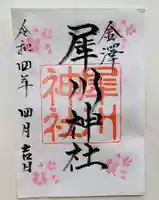 金澤
犀川神社
犀川
神社
令和四年 四月吉日